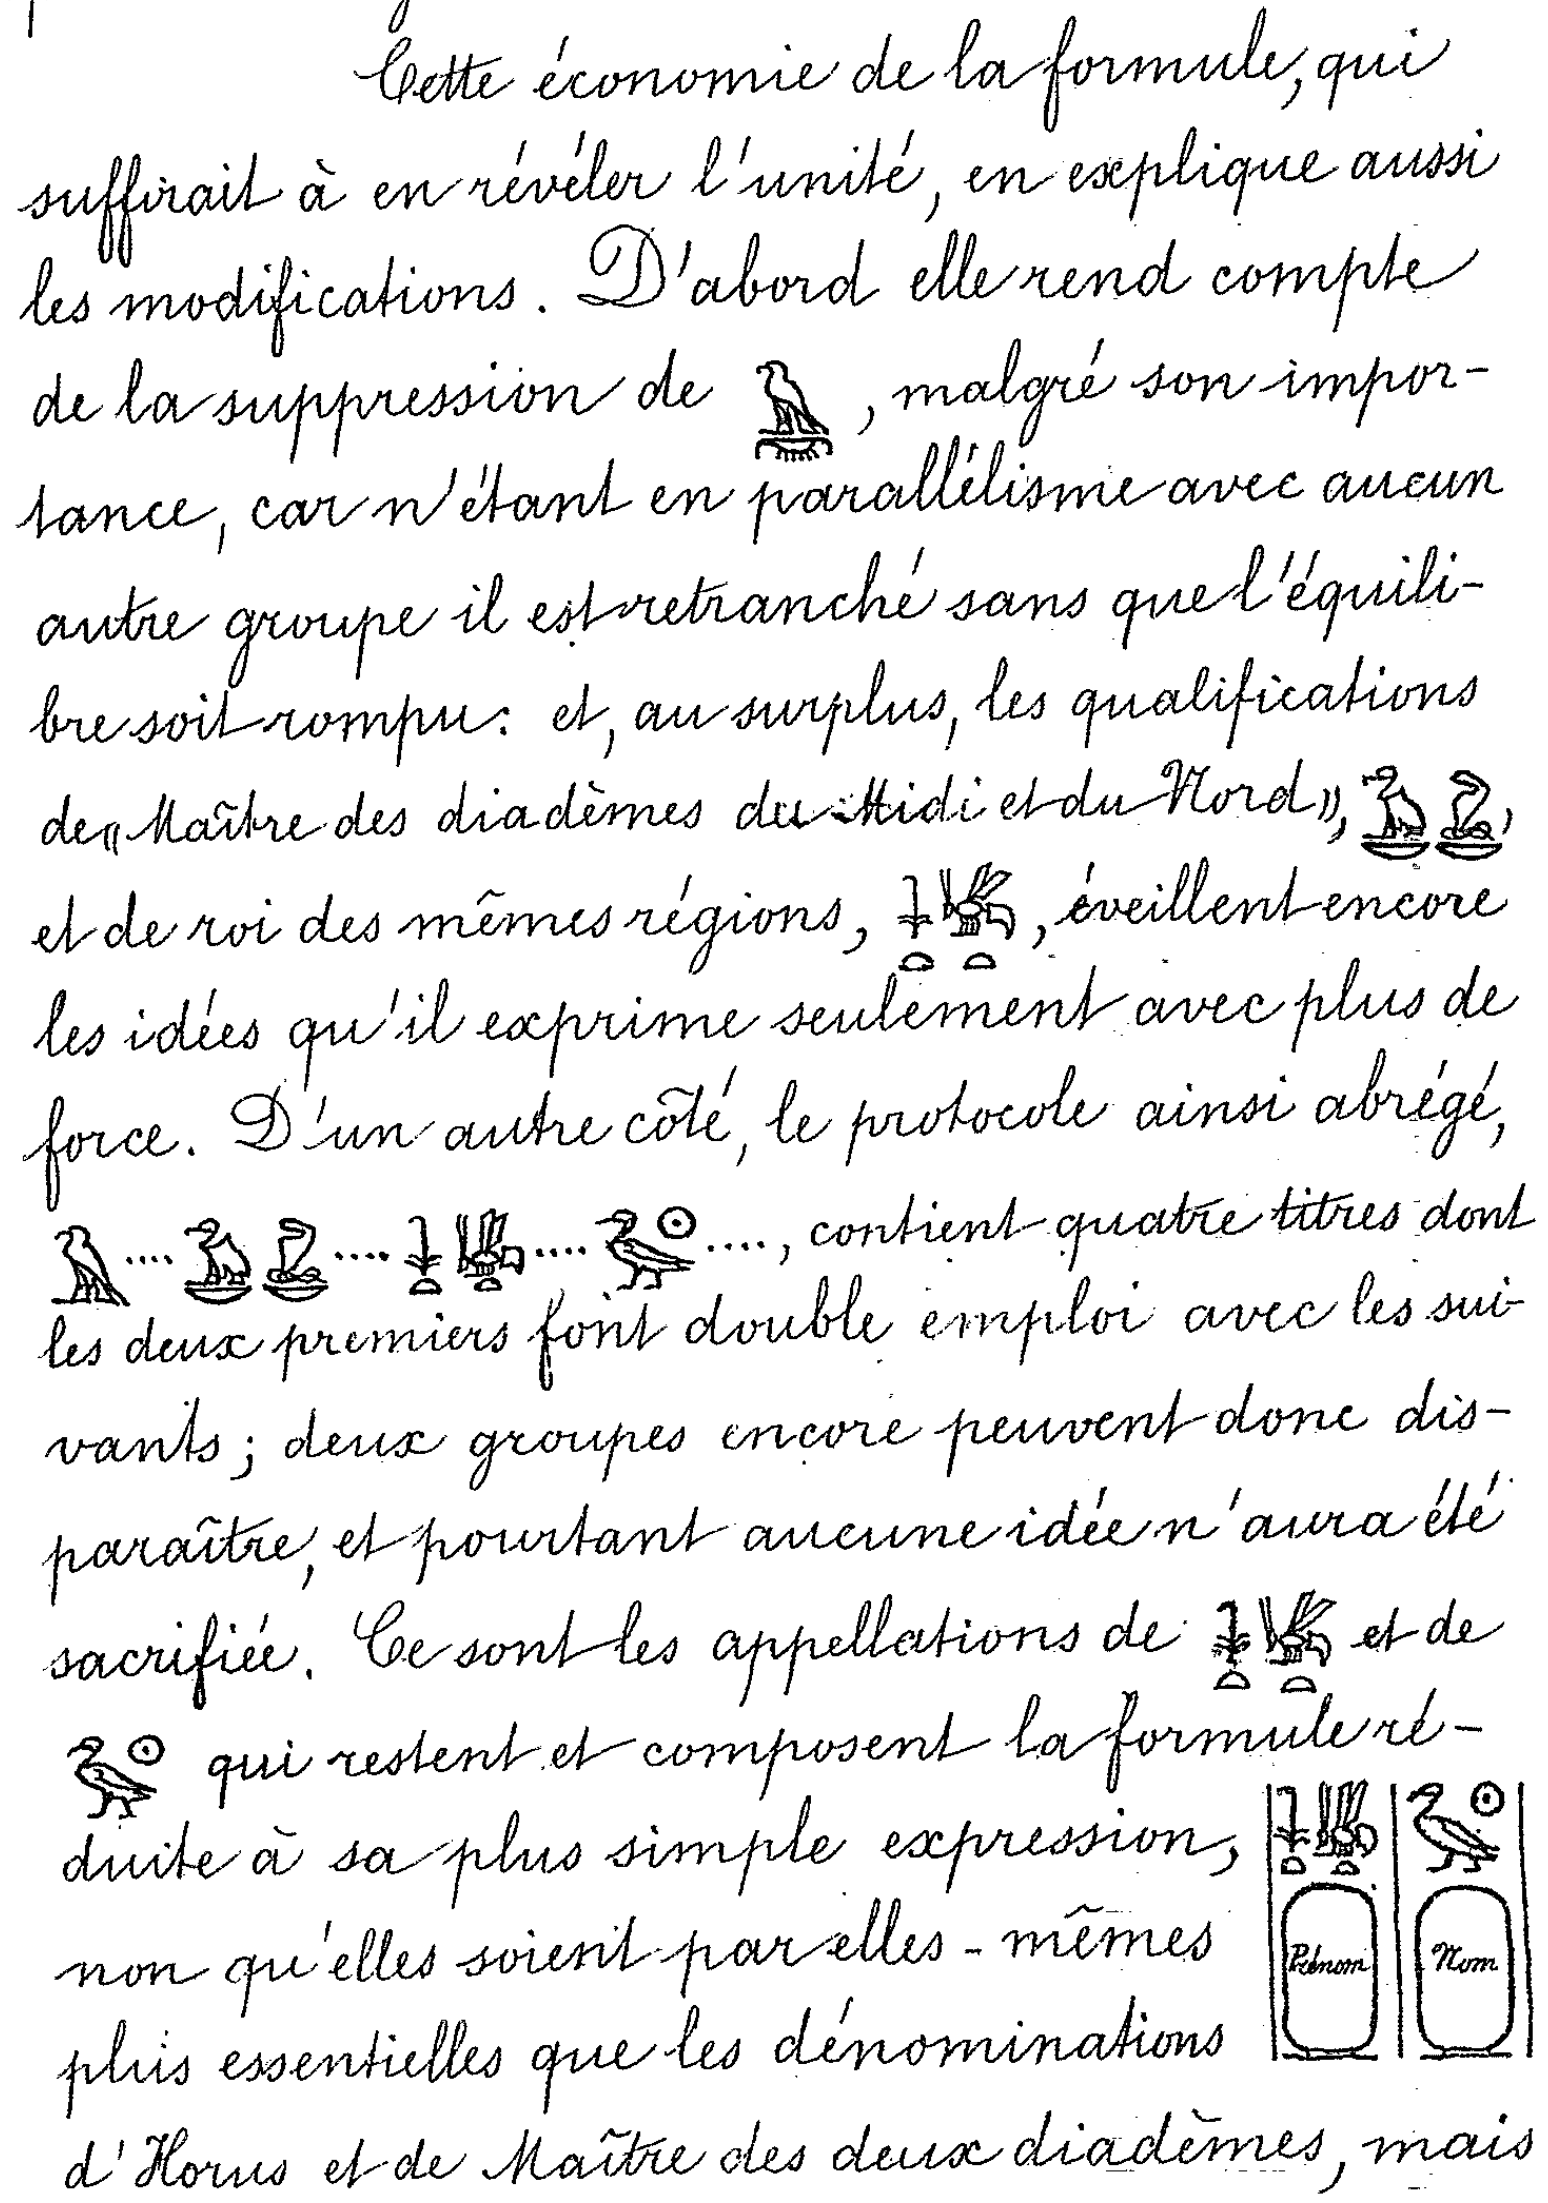 Cette économie de la formule, qui
suffirait à en révéler l'unité, en explique aussi
les modifications. D'abord elle rend compte
de la suppression de 𓅉, malgré son impor-
tance, car n'étant en parallélisme avec aucun
autre groupe il est retranché sans que l'équili-
bre soit rompu: et, au surplus, les qualifications
de «Maître des diadèmes du Midi et du Nord», 𓅒,
et de roi des mêmes régions, 𓇓𓏏𓆤𓏏, éveillent encore
les idées qu'il exprime seulement avec plus de
force. D'un autre côté, le protocole ainsi abrégé,
𓅃....𓅒....𓇓𓏏𓆤𓏏....𓅭𓇳...., contient quatre titres dont
les deux premiers font double emploi avec les sui-
vants; deux groupes encore peuvent donc dis-
paraître, et pourtant aucune idée n'aura été
sacrifiée. Ce sont les appellations de 𓇓𓏏𓆤𓏏 et de
𓅭𓇳 qui restent et composent la formule ré-
duite à sa plus simple expression, 𓇓𓏏𓆤𓏏 𓅭𓇳
non qu'elles soient par elles-mêmes Prénom Nom
plus essentielles que les dénominations
d'Horus et de Maître des deux diadèmes, mais